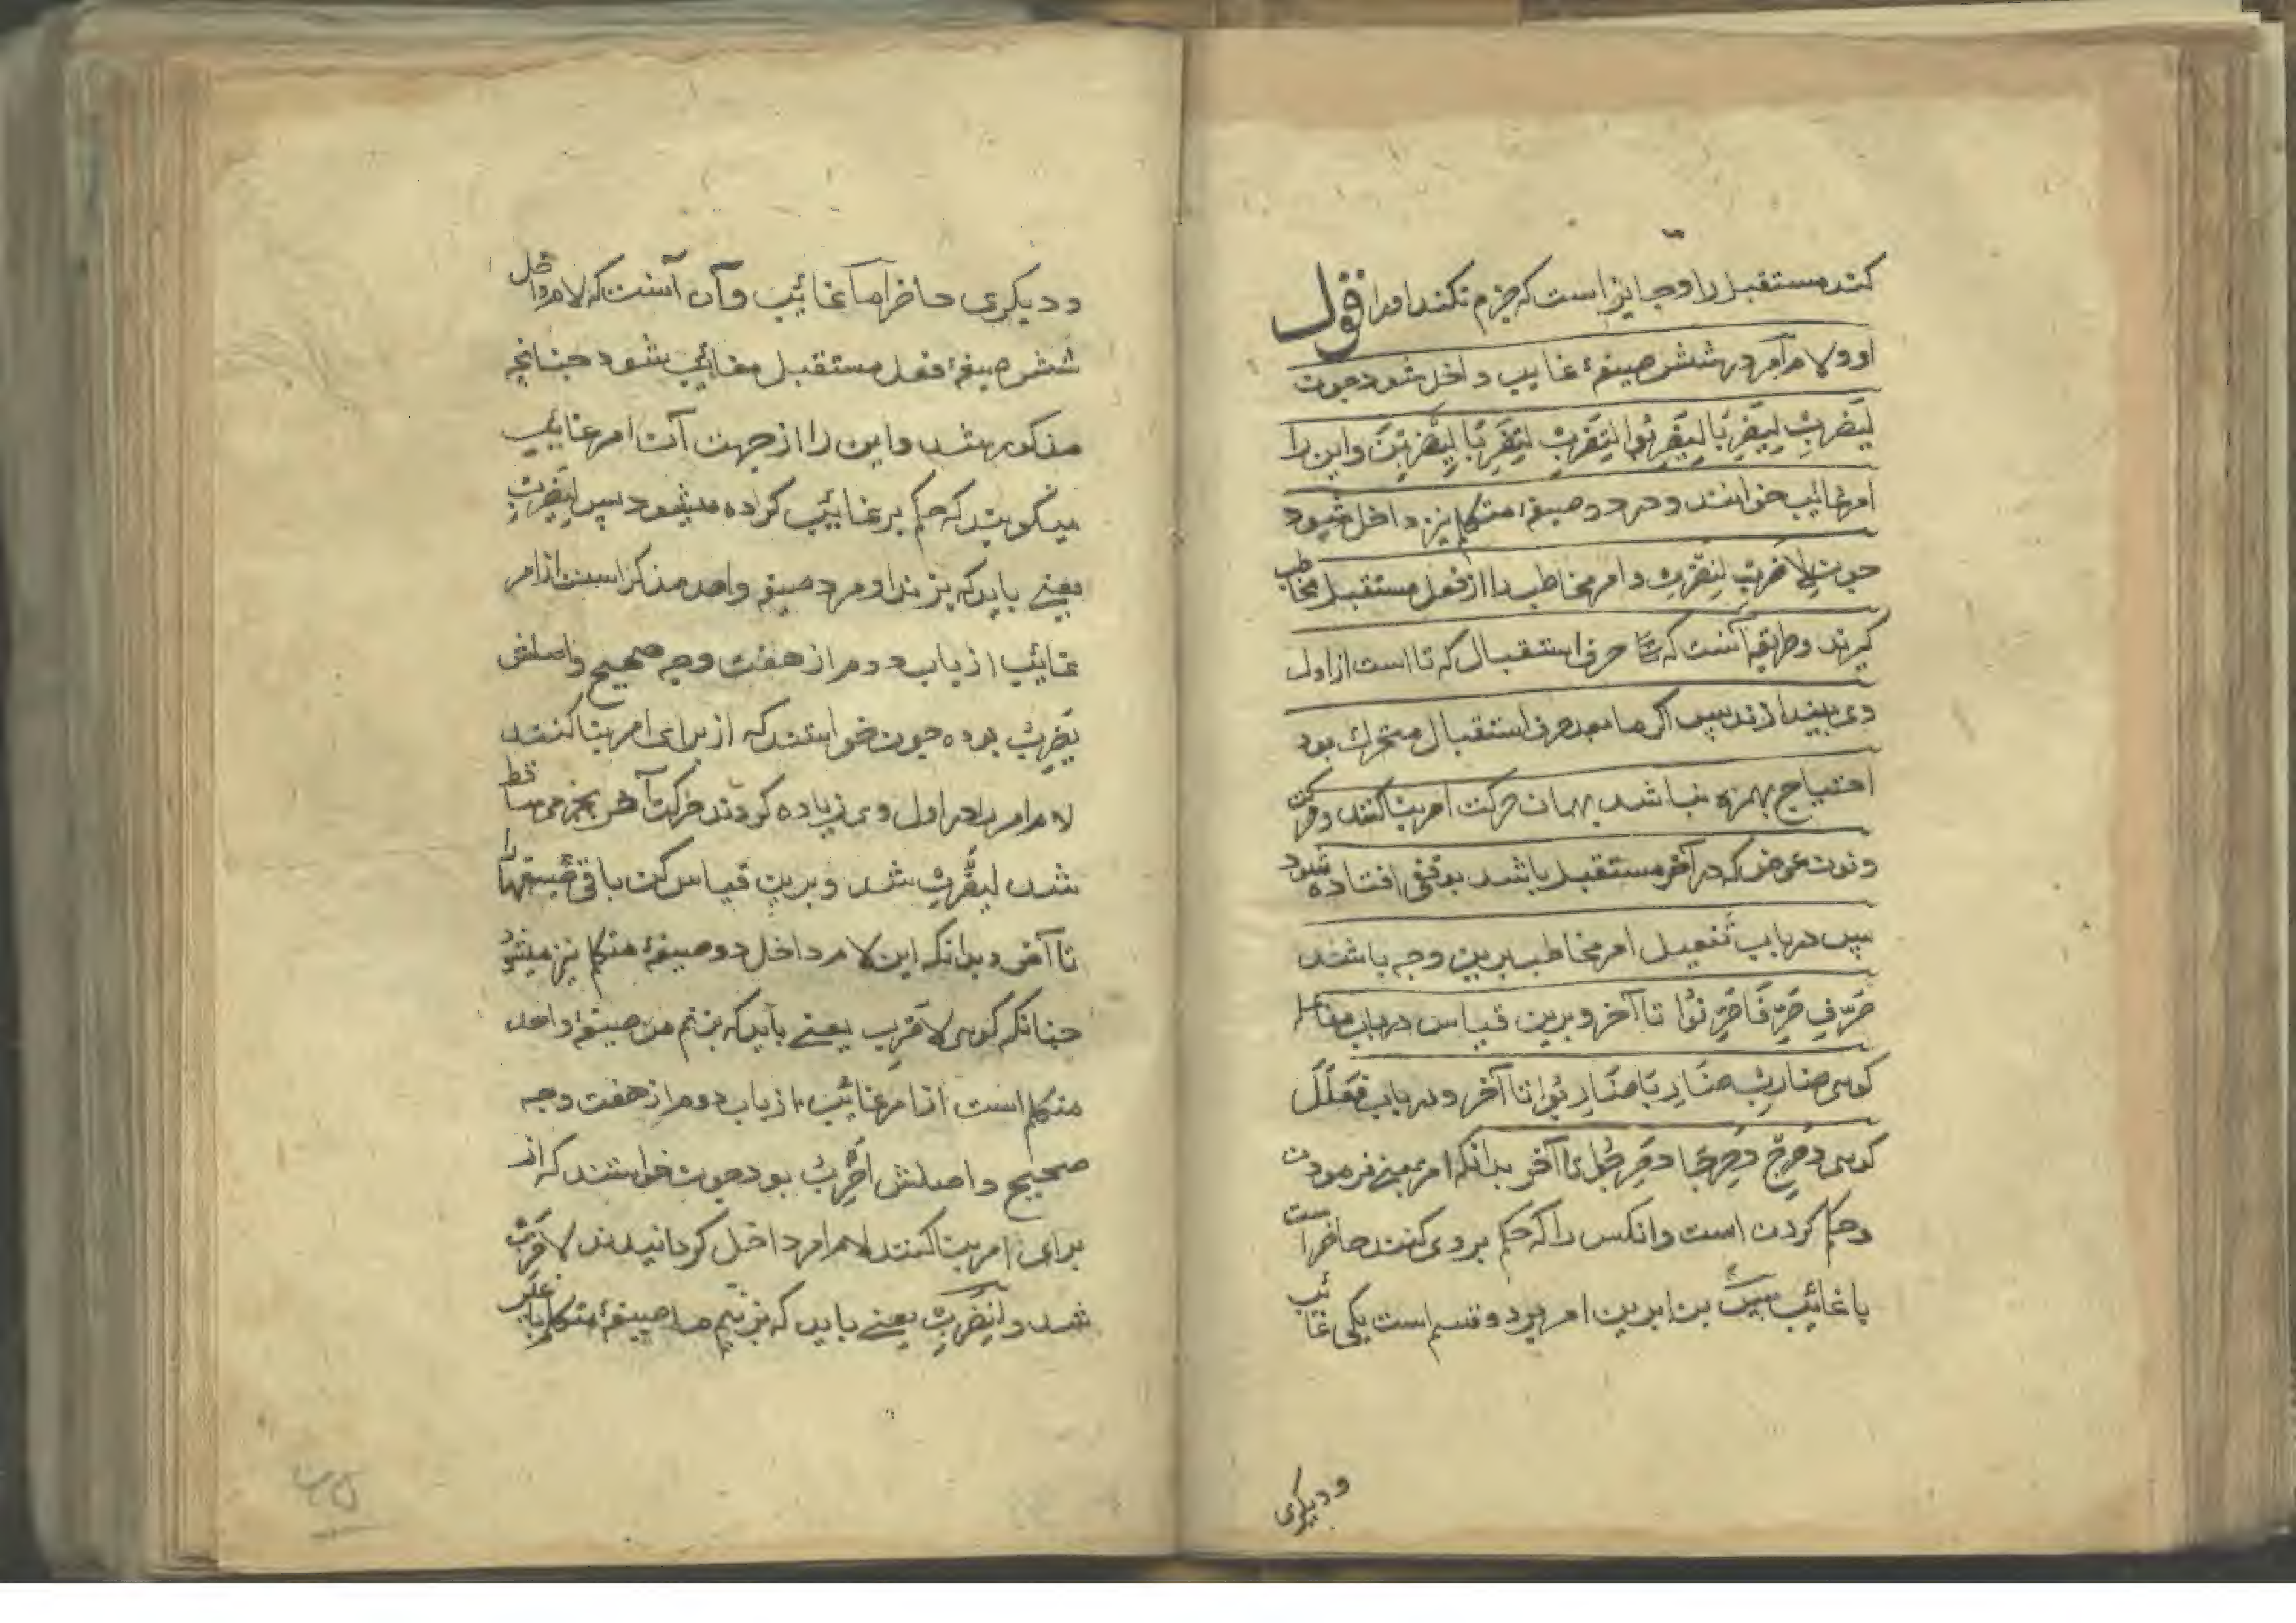 کند مستقبل را و جایز است که جزم نکند او را قول
او و لام امر در شش صیغهٔ غایب داخل شود چون
لِیَضْرِبْ لِیَضْرِبَا لِیَضْرِبُوا لِتَضْرِبْ لِتَضْرِبَا لِیَضْرِبْنَ و این را
امر غائب خوانند و در دو صیغهٔ متکلم نیز داخل شود
چون لِاَضْرِبْ لِنَضْرِبْ و امر مخاطب را از فعل مستقبل مخاطب
گیرند و طریقه آنست که حرف استقبال که تا است از اول
وی بیندازند پس اگر ما بعد حرف استقبال متحرک بود
احتیاج بهمزه نباشد بهمان حرکت امر بنا کنند و حرکت
و نون عوض که در آخر مستقبل باشد بوقفی افتاده شود
پس در باب تفعیل امر مخاطب برین وجه باشند
صَرِّفْ صَرِّفَا صَرِّفُوا تا آخر و برین قیاس در باب مفاعله
گوی ضَارِبْ ضَارِبَا ضَارِبُوا تا آخر و در باب فَعْلَلَ
گوی دَحْرِجْ دَحْرِجَا دَحْرِجُوا تا آخر بدانکه امر بمعنی فرمودن
و حکم کردن است و انکس را که حکم بر وی کنند حاضر است
یا غائب پس بنا برین امر بر دو قسم است یکی غائب
و دیکری
و دیکری حاضر اما غائب و آن آنست که لام داخل
شش صیغهٔ فعل مستقبل مغائب شود چنانچه
مذکور شد و این را از جهت آن امر غائب
میگویند که حکم بر غائب کرده میشود پس لِیَضْرِبْ
یعنی باید که بزند او مرد صیغه واحد مذکر است از امر
غائب از باب دوم از هفت وجه صحیح و اصلش
یَضْرِبُ بوده چون خواستند که از برای امر بنا کنند
لام امر را در اول وی زیاده کردند حرکت آخر بجزمی ساقط
شد لِیَضْرِبْ شد و برین قیاس کن باقی صیغها را
تا آخر و بدانکه این لام داخل دو صیغهٔ متکلم نیز میشود
چنانکه گوی لِاَضْرِبْ یعنی باید که بزنم من صیغهٔ واحد
متکلم است از امر غائب از باب دوم از هفت وجه
صحیح و اصلش اَضْرِبُ بود چون خواستند که از
برای امر بنا کنند لام امر داخل گردانیدند لِاَضْرِبْ
شد و لِنَضْرِبْ یعنی باید که بزنیم ما صیغهٔ متکلم